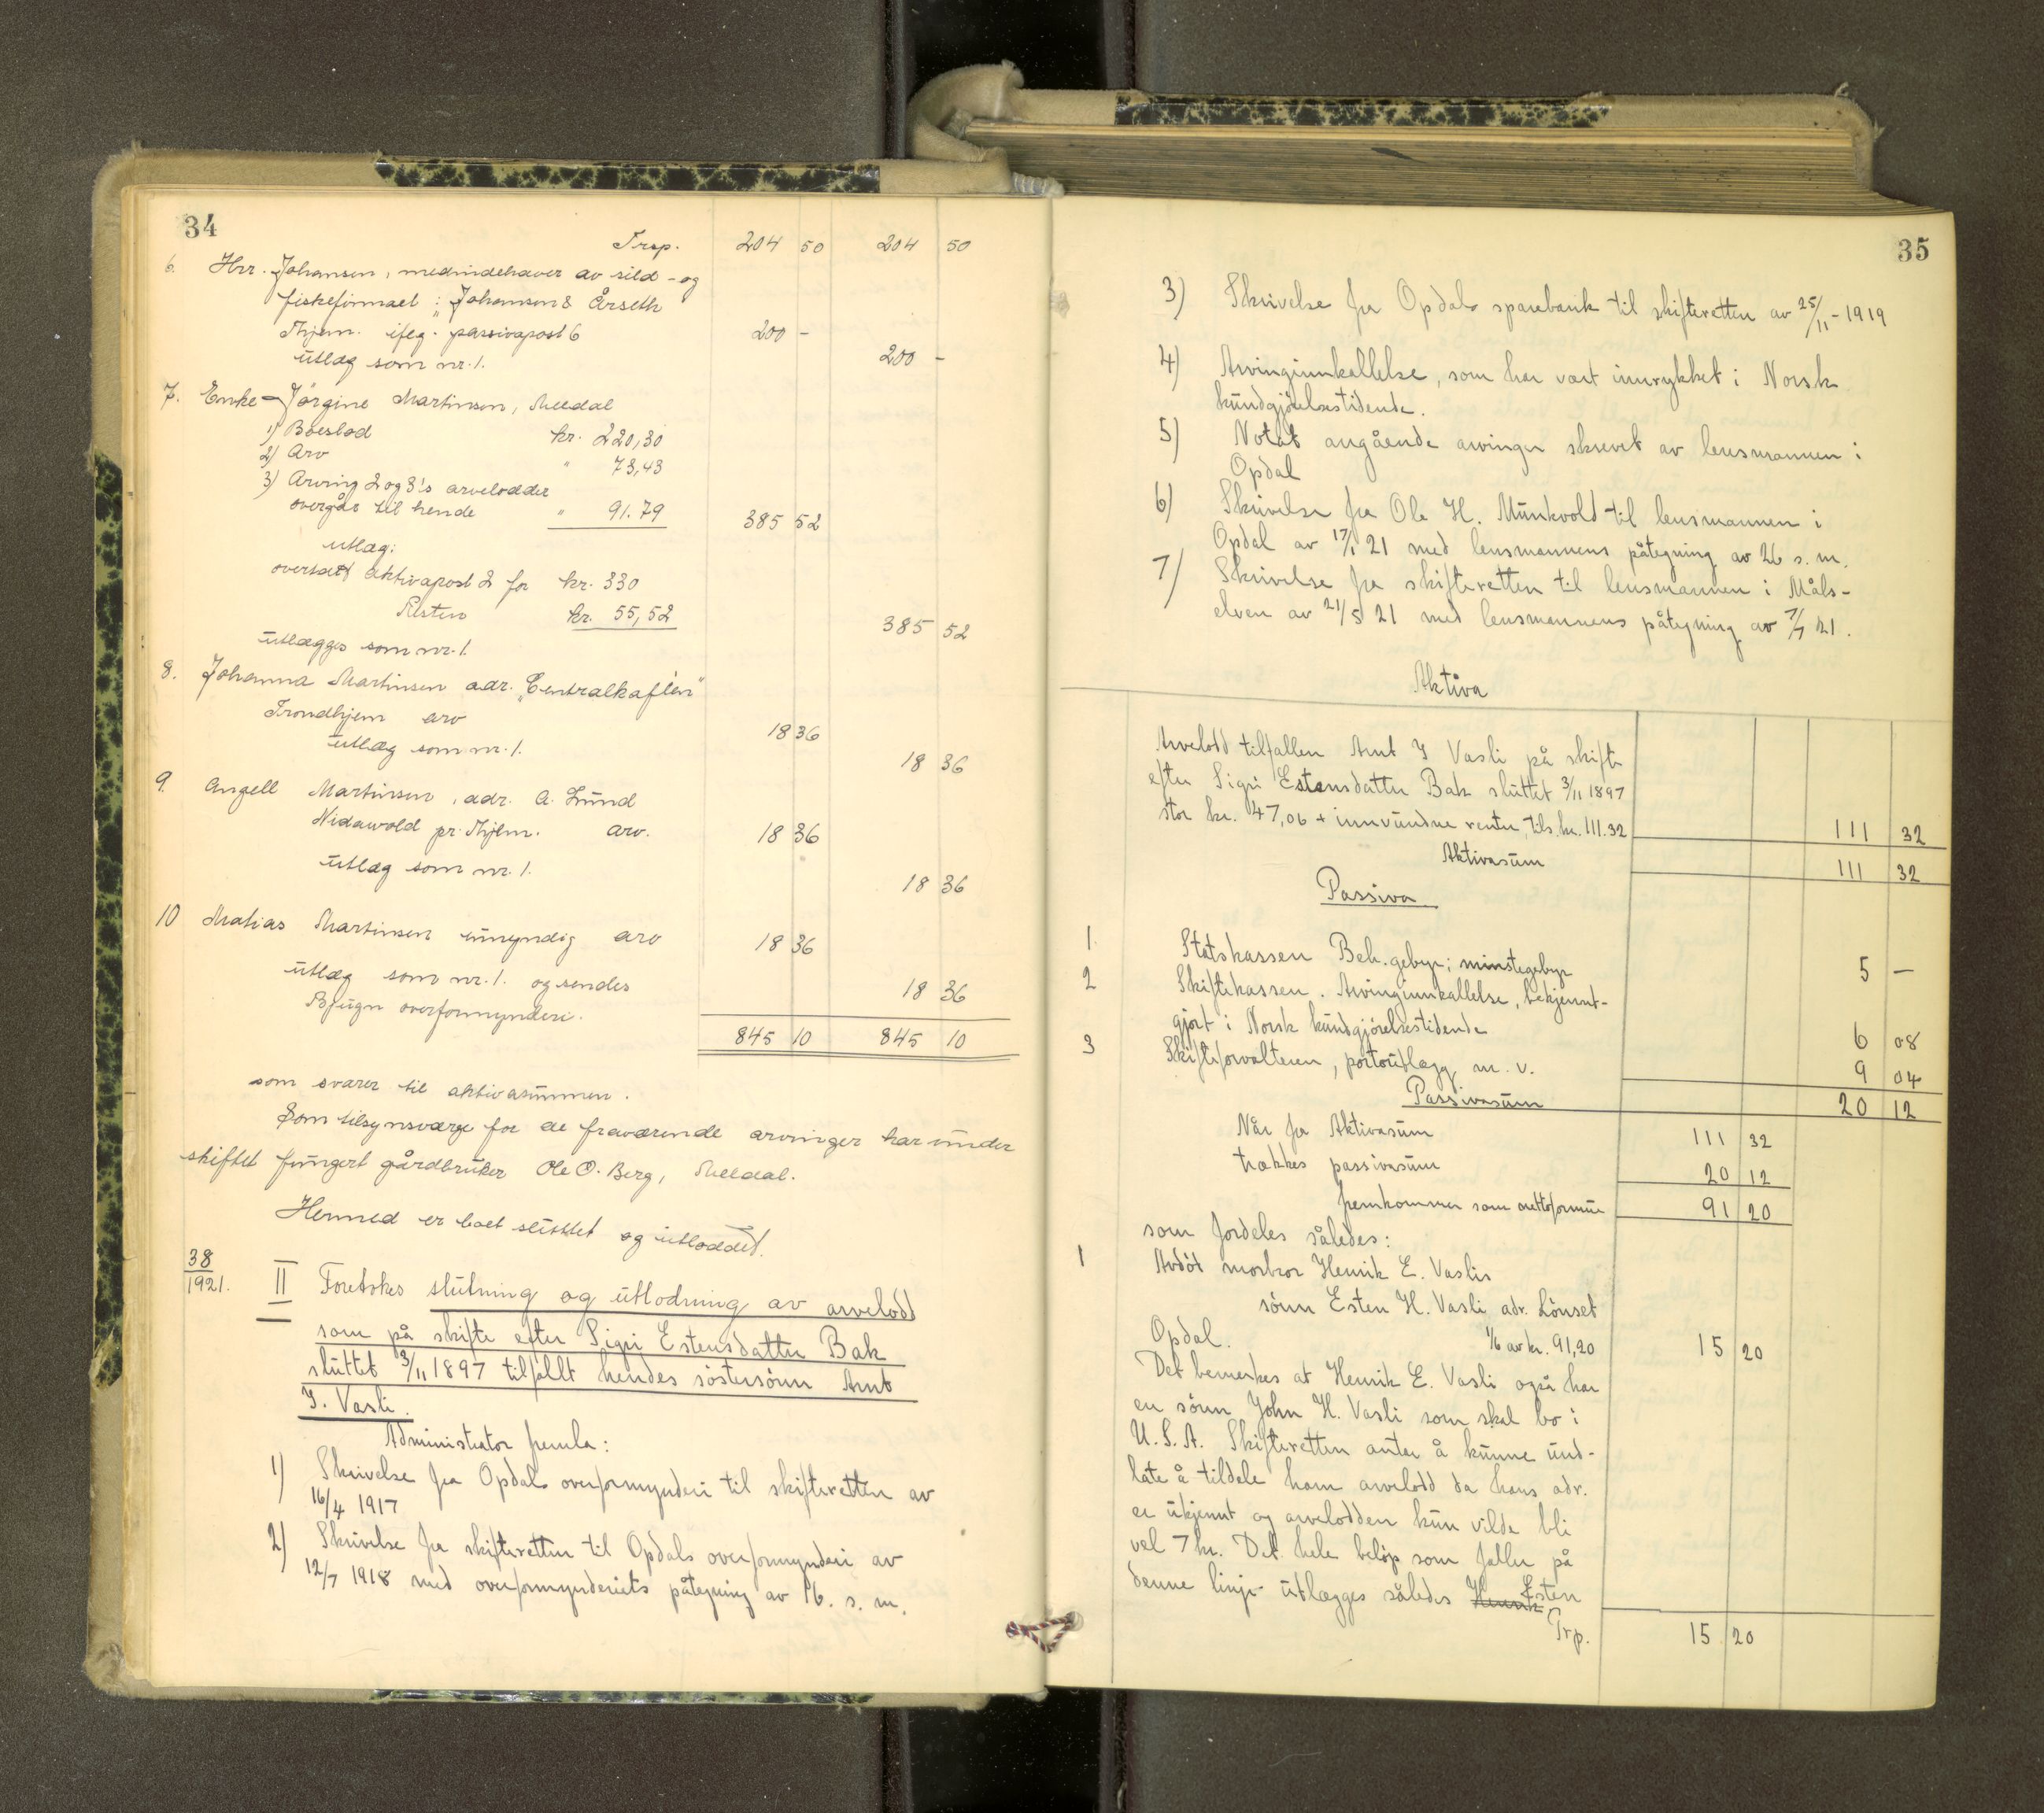 34
Trsp. 204 50 204 50
6. Hrr. Johansen, medindehaver av sild- og
fiskefirmaet: "Johansen & Årseth
Thjem. iflg. passivapost 6 200 -
utlæg som nr. 1. 200 -
7. Enke - Jørgine Martinsen, Meldal
1) Boeslod kr. 220,30
2) Arv " 73,43
3) Arving 2 og 3's arvelodder
overgår til hende " 91.79 385 52
utlæg:
overtatt aktivapost 2 for kr. 330
Resten kr. 55,52 385 52
utlægges som nr. 1.
8. Johanna Martinsen adr. "Centralkafeen"
Trondhjem arv 18 36
utlæg som nr. 1. 18 36
9. Angell Martinsen, adr. A. Lund
Nidarvold pr. Thjem. arv. 18 36
utlæg som nr. 1. 18 36
10 Matias Martinsen umyndig arv 18 36
utlæg som nr. 1. og sendes 18 36
Bjugn overformynderi.
845 10 845 10
som svarer til aktivasummen.
Som tilsynsværge for de fraværende arvinger har under
skiftet fungert gårdbruker Ole O. Berg, Meldal.
Hermed er boet sluttet og utloddet.
38/1921. II Foretokes slutning og utlodning av arvelodd
som på skifte efter Sigri Estensdatter Bak
sluttet 3/11 1897 tilfallt hendes söstersönn Arnt
I. Vasli.
Administrator fremla:
1) Skrivelse fra Opdals overformynderi til skifteretten av
16/4 1917
2) Skrivelse fra skifteretten til Opdals overformynderi av
12/7 1918 med overformynderiets påtegning av 16. s. m.
35
3) Skrivelse fra Opdals sparebank til skifteretten av 25/11 - 1919
4) Arvinginnkallelse, som har vært innrykket i Norsk
kundgjörelsestidende.
5) Notat angående arvinger skrevet av lensmannen i
Opdal
6) Skrivelse fra Ole H. Munkvold til lensmannen i
Opdal av 17/1 21 med lensmannens påtegning av 26 s. m.
7) Skrivelse fra skifteretten til lensmannen i Måls-
elven av 21/5 21 med lensmannens påtegning av 7/7 21.
Aktiva
Arvelodd tilfallen Arnt I Vasli på skifte
efter Sigri Estensdatter Bak sluttet 3/11 1897
stor kr. 47,06 + innvundne renter, tils. kr. 111.32 111 32
Aktivasum 111 32
Passiva
1. Statskassen Beh. gebyr; minstegebyr 5 —
2 Skiftekassen. Arvinginnkallelse, bekjennt-
gjort i Norsk kundgjörelsestidende 6 08
3 Skifteforvalteren, portoutlegg m. v. 9 04
Passivasum 20 12
Når fra Aktivasum 111 32
trækkes passivasum 20 12
fremkommer som nettoformue 91 20
som fordeles således:
1 Avdöd morbror Henrik E. Vaslis
sönn Esten H. Vasli, adr. Lönset
Opdal. 1/6 av kr. 91,20 15 20
Det bemerkes at Henrik E. Vasli også har
en sönn John H. Vasli som skal bo i
U. S. A. Skifteretten antar å kunne und-
late å tildele ham arvelodd da hans adr.
er ukjennt og arvelodden kun vilde bli
vel 7 kr. Det hele belöp som faller på
denne linje utlægges således Henrik Esten
Trp. 15 20